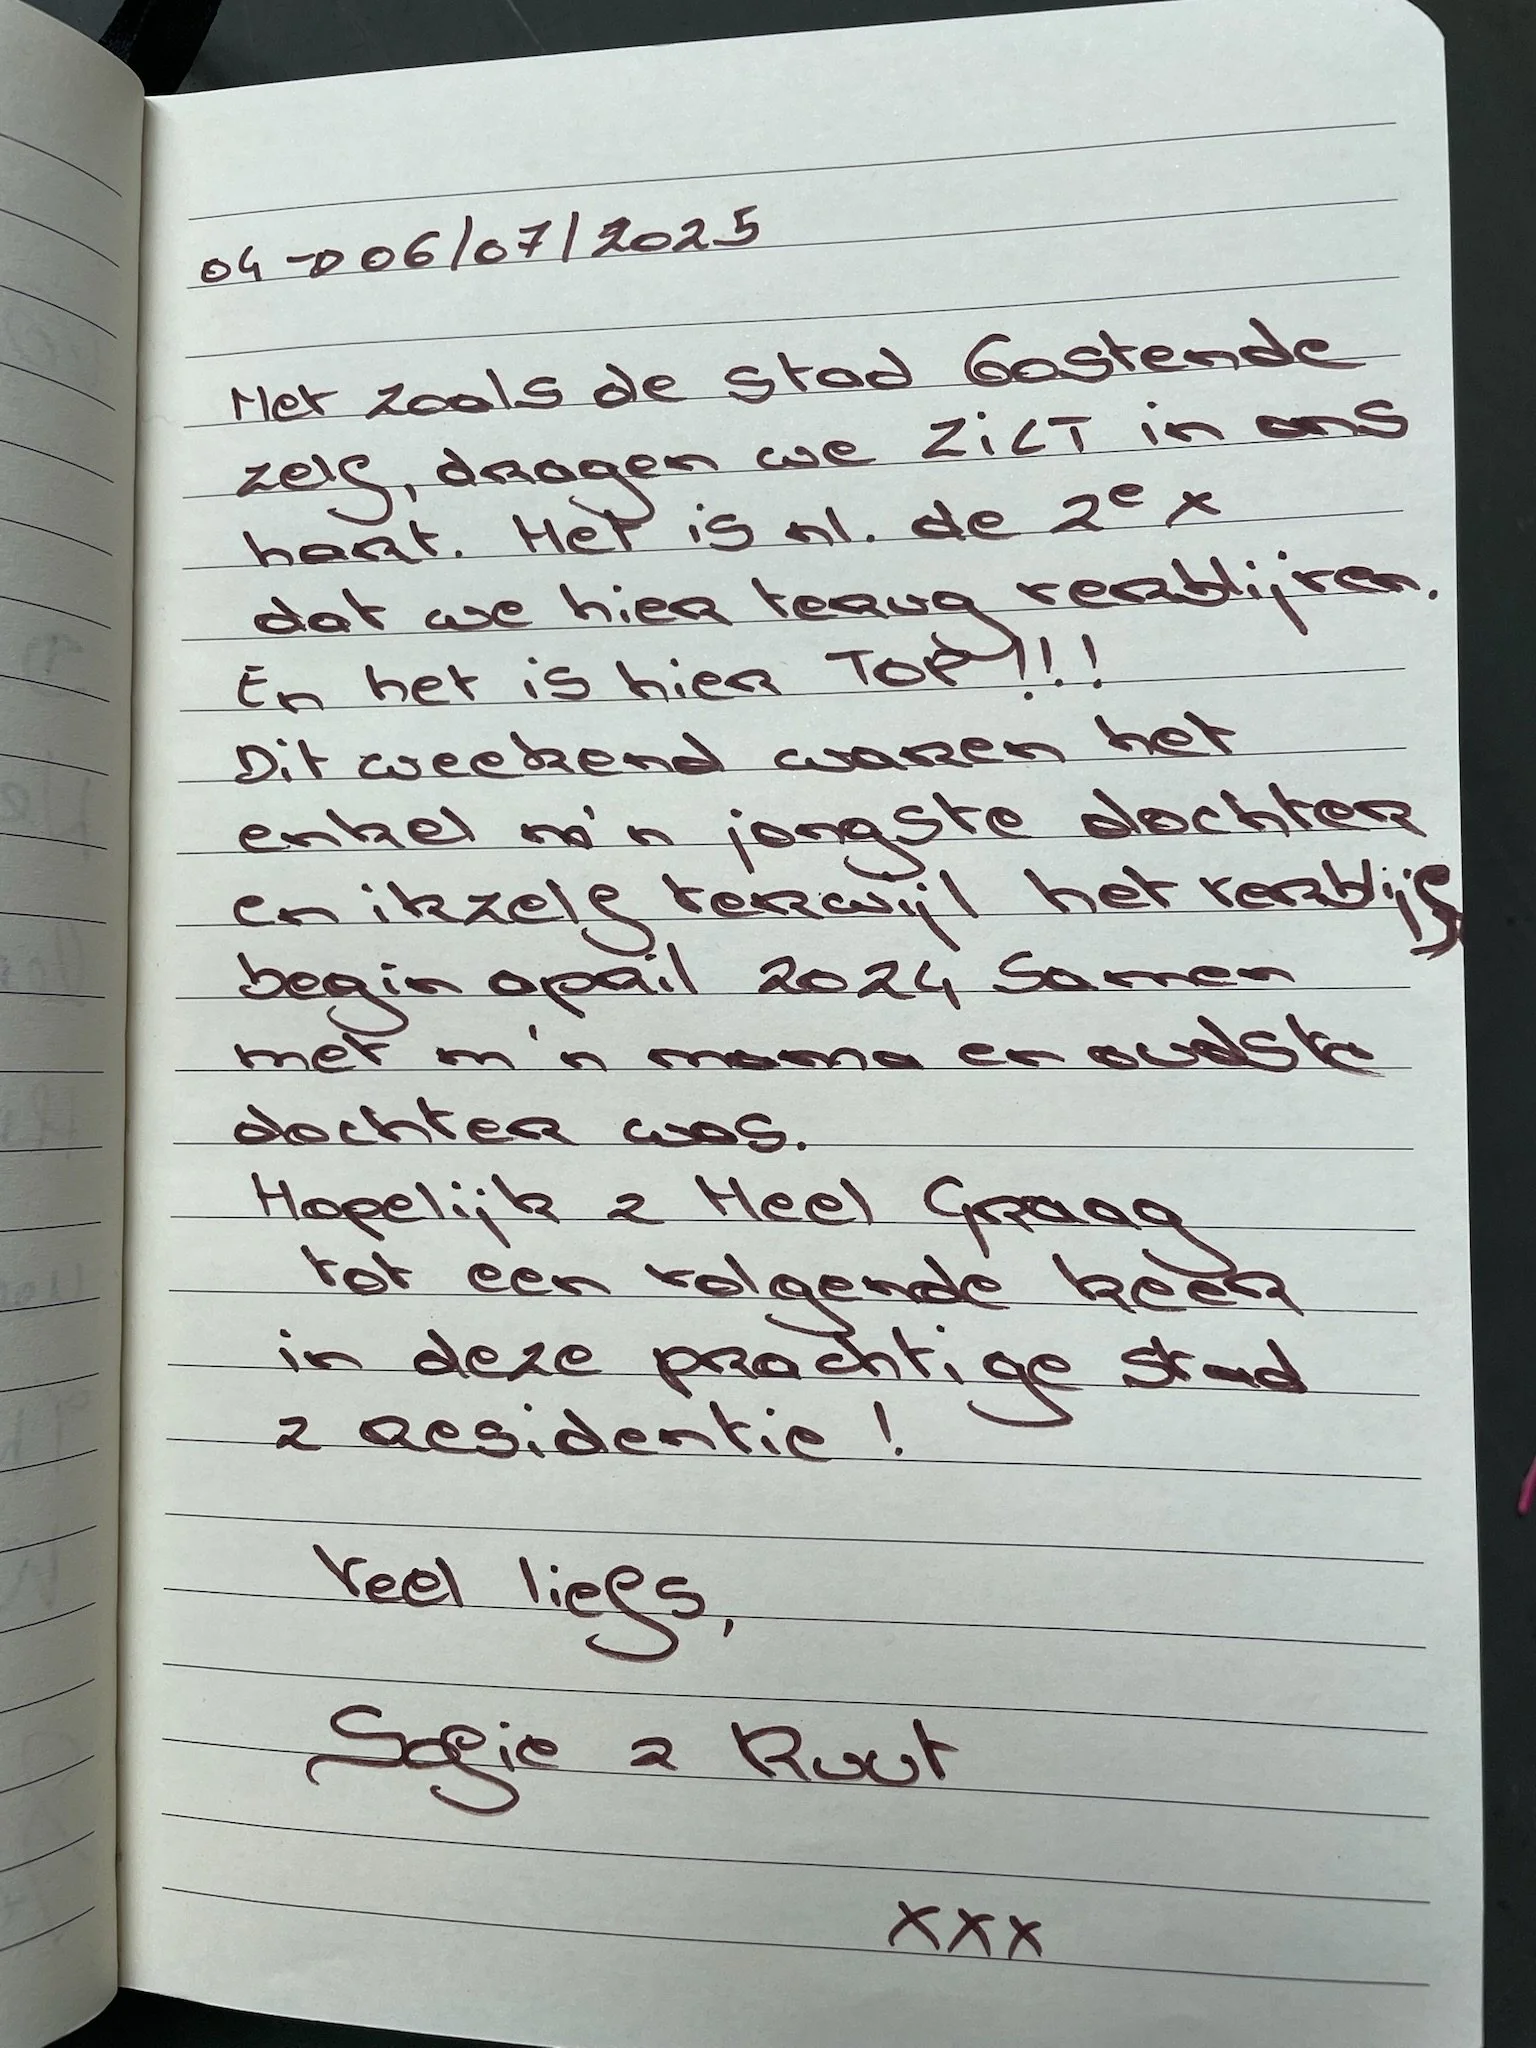 04 → 06/07/2025
Net zoals de stad Oostende
zelf, dragen we ZiLT in ons
hart. Het is nl. de 2e x
dat we hier terug verblijven.
En het is hier TOP!!!
Dit weekend waren het
enkel m'n jongste dochter
en ikzelf terwijl het verblijf
begin april 2024 samen
met m'n mama en oudste
dochter was.
Hopelijk & Heel Graag
tot een volgende keer
in deze prachtige stad
& residentie!
Veel liefs,
Sofie & Ruut
xxx